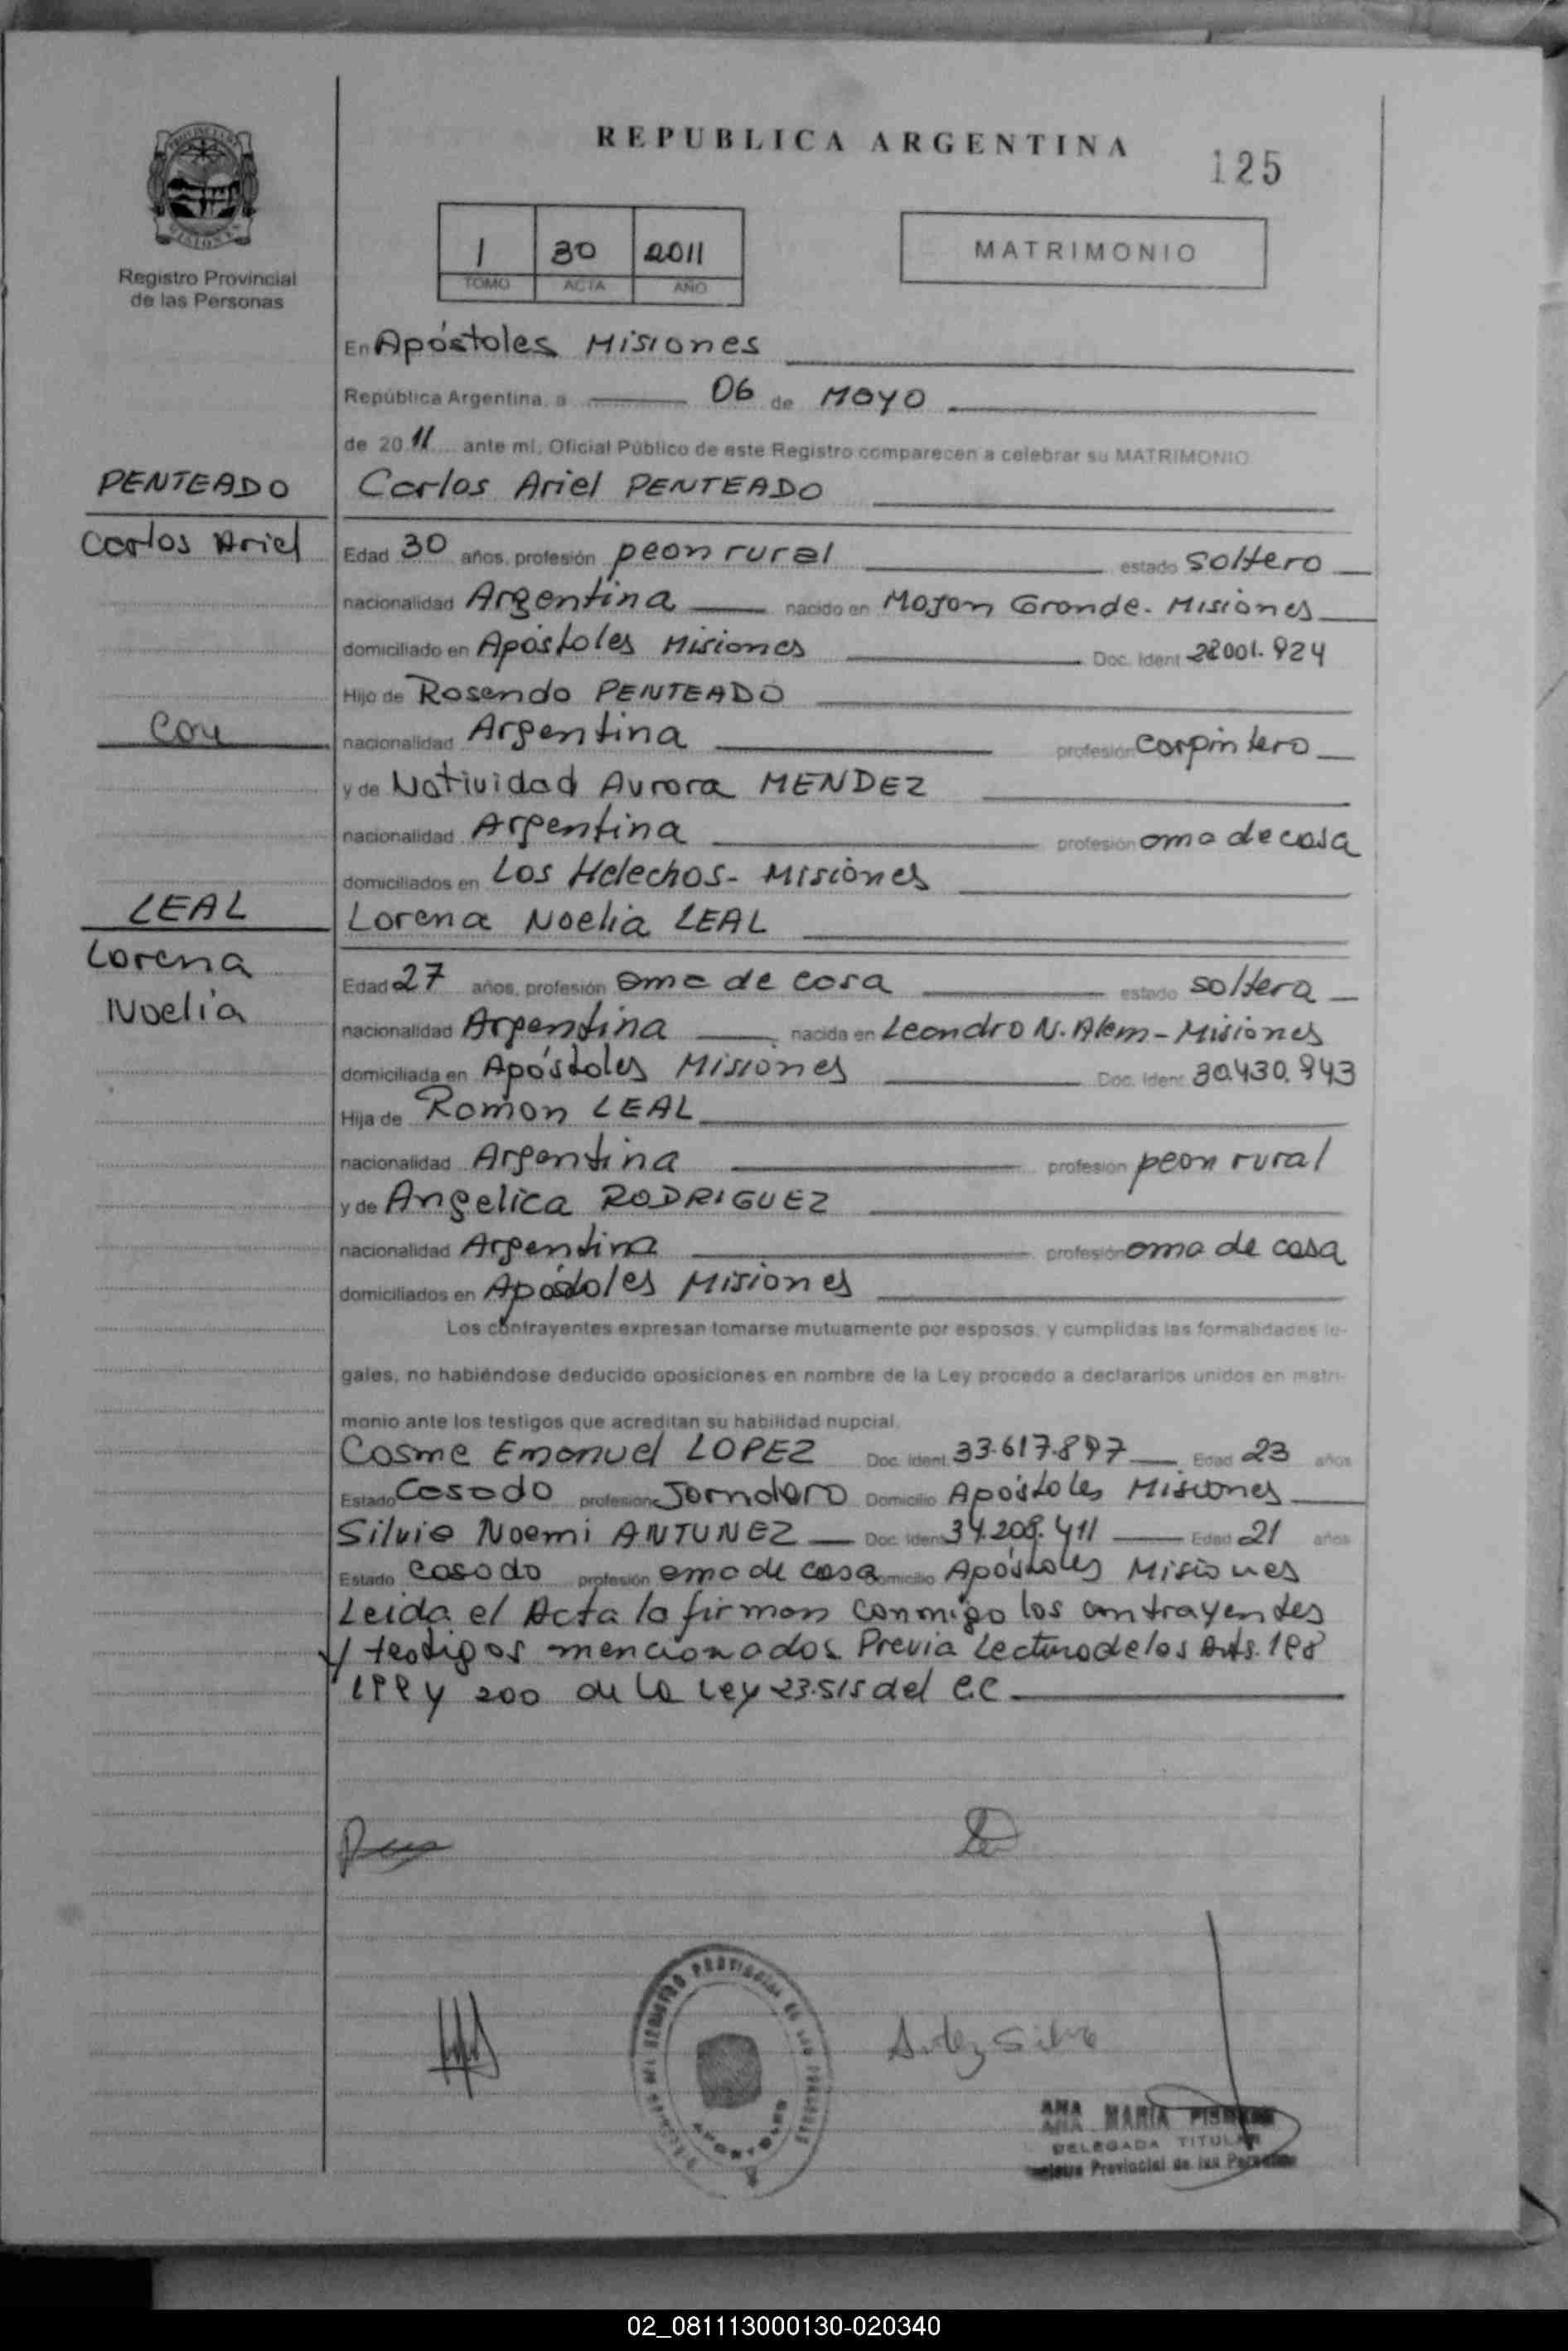 REPUBLICA ARGENTINA
125
PROVINCIA DE
MISIONES
Registro Provincial
de las Personas
1 30 2011
TOMO ACTA AÑO
MATRIMONIO
En Apóstoles Misiones
República Argentina, a 06 de Mayo
de 2011 ante mí, Oficial Público de este Registro comparecen a celebrar su MATRIMONIO
PENTEADO
Carlos Ariel
Con
LEAL
Lorena
Noelia
Carlos Ariel PENTEADO
Edad 30 años, profesión peon rural estado soltero
nacionalidad Argentina nacido en Mojon Grande - Misiones
domiciliado en Apóstoles Misiones Doc. Ident 28001.924
Hijo de Rosendo PENTEADO
nacionalidad Argentina profesión carpintero
y de Natividad Aurora MENDEZ
nacionalidad Argentina profesión ama de casa
domiciliados en Los Helechos - Misiones
Lorena Noelia LEAL
Edad 27 años, profesión ama de casa estado soltera
nacionalidad Argentina nacida en Leandro N. Alem - Misiones
domiciliada en Apóstoles Misiones Doc. Ident 30.430.943
Hija de Ramon LEAL
nacionalidad Argentina profesión peon rural
y de Angelica RODRIGUEZ
nacionalidad Argentina profesión ama de casa
domiciliados en Apóstoles Misiones
Los contrayentes expresan tomarse mutuamente por esposos, y cumplidas las formalidades le-
gales, no habiéndose deducido oposiciones en nombre de la Ley procedo a declararlos unidos en matri-
monio ante los testigos que acreditan su habilidad nupcial.
Cosme Emanuel LOPEZ Doc. Ident. 33.617.897 Edad 23 años
Estado Casado profesion Jornalero Domicilio Apóstoles Misiones
Silvia Noemi ANTUNEZ Doc. Ident 34.209.411 Edad 21 años
Estado casado profesión ama de casa Domicilio Apóstoles Misiones
Leida el Acta la firman conmigo los contrayentes
y testigos mencionados Previa Lectura de los Arts. 198
199 y 200 de la Ley 23.515 del C.C
REGISTRO PROVINCIAL DE LAS PERSONAS
APOSTOLES
Silva
ANA MARIA
DELEGADA TITULAR
Provincial de las Personas
02_081113000130-020340